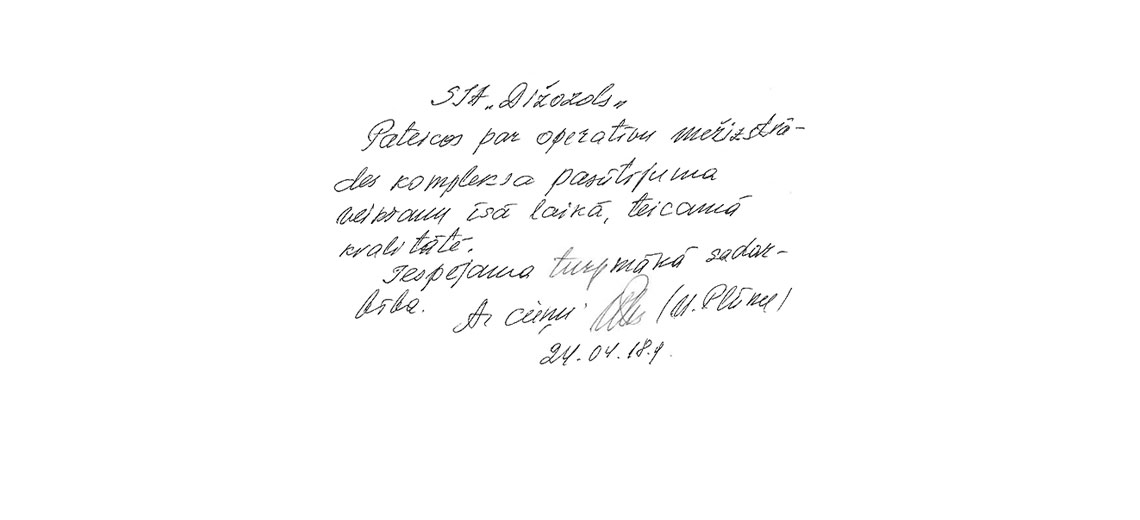 SIA „Dižozols„
Pateicos par operatīvu mežizstrā-
des kompleksa pasūtījuma
veikšanu īsā laikā, teicamā
kvalitātē.
Iespējama turpmākā sadar-
bība.
Ar cieņu (M. Plūme)
24.04.18.g.